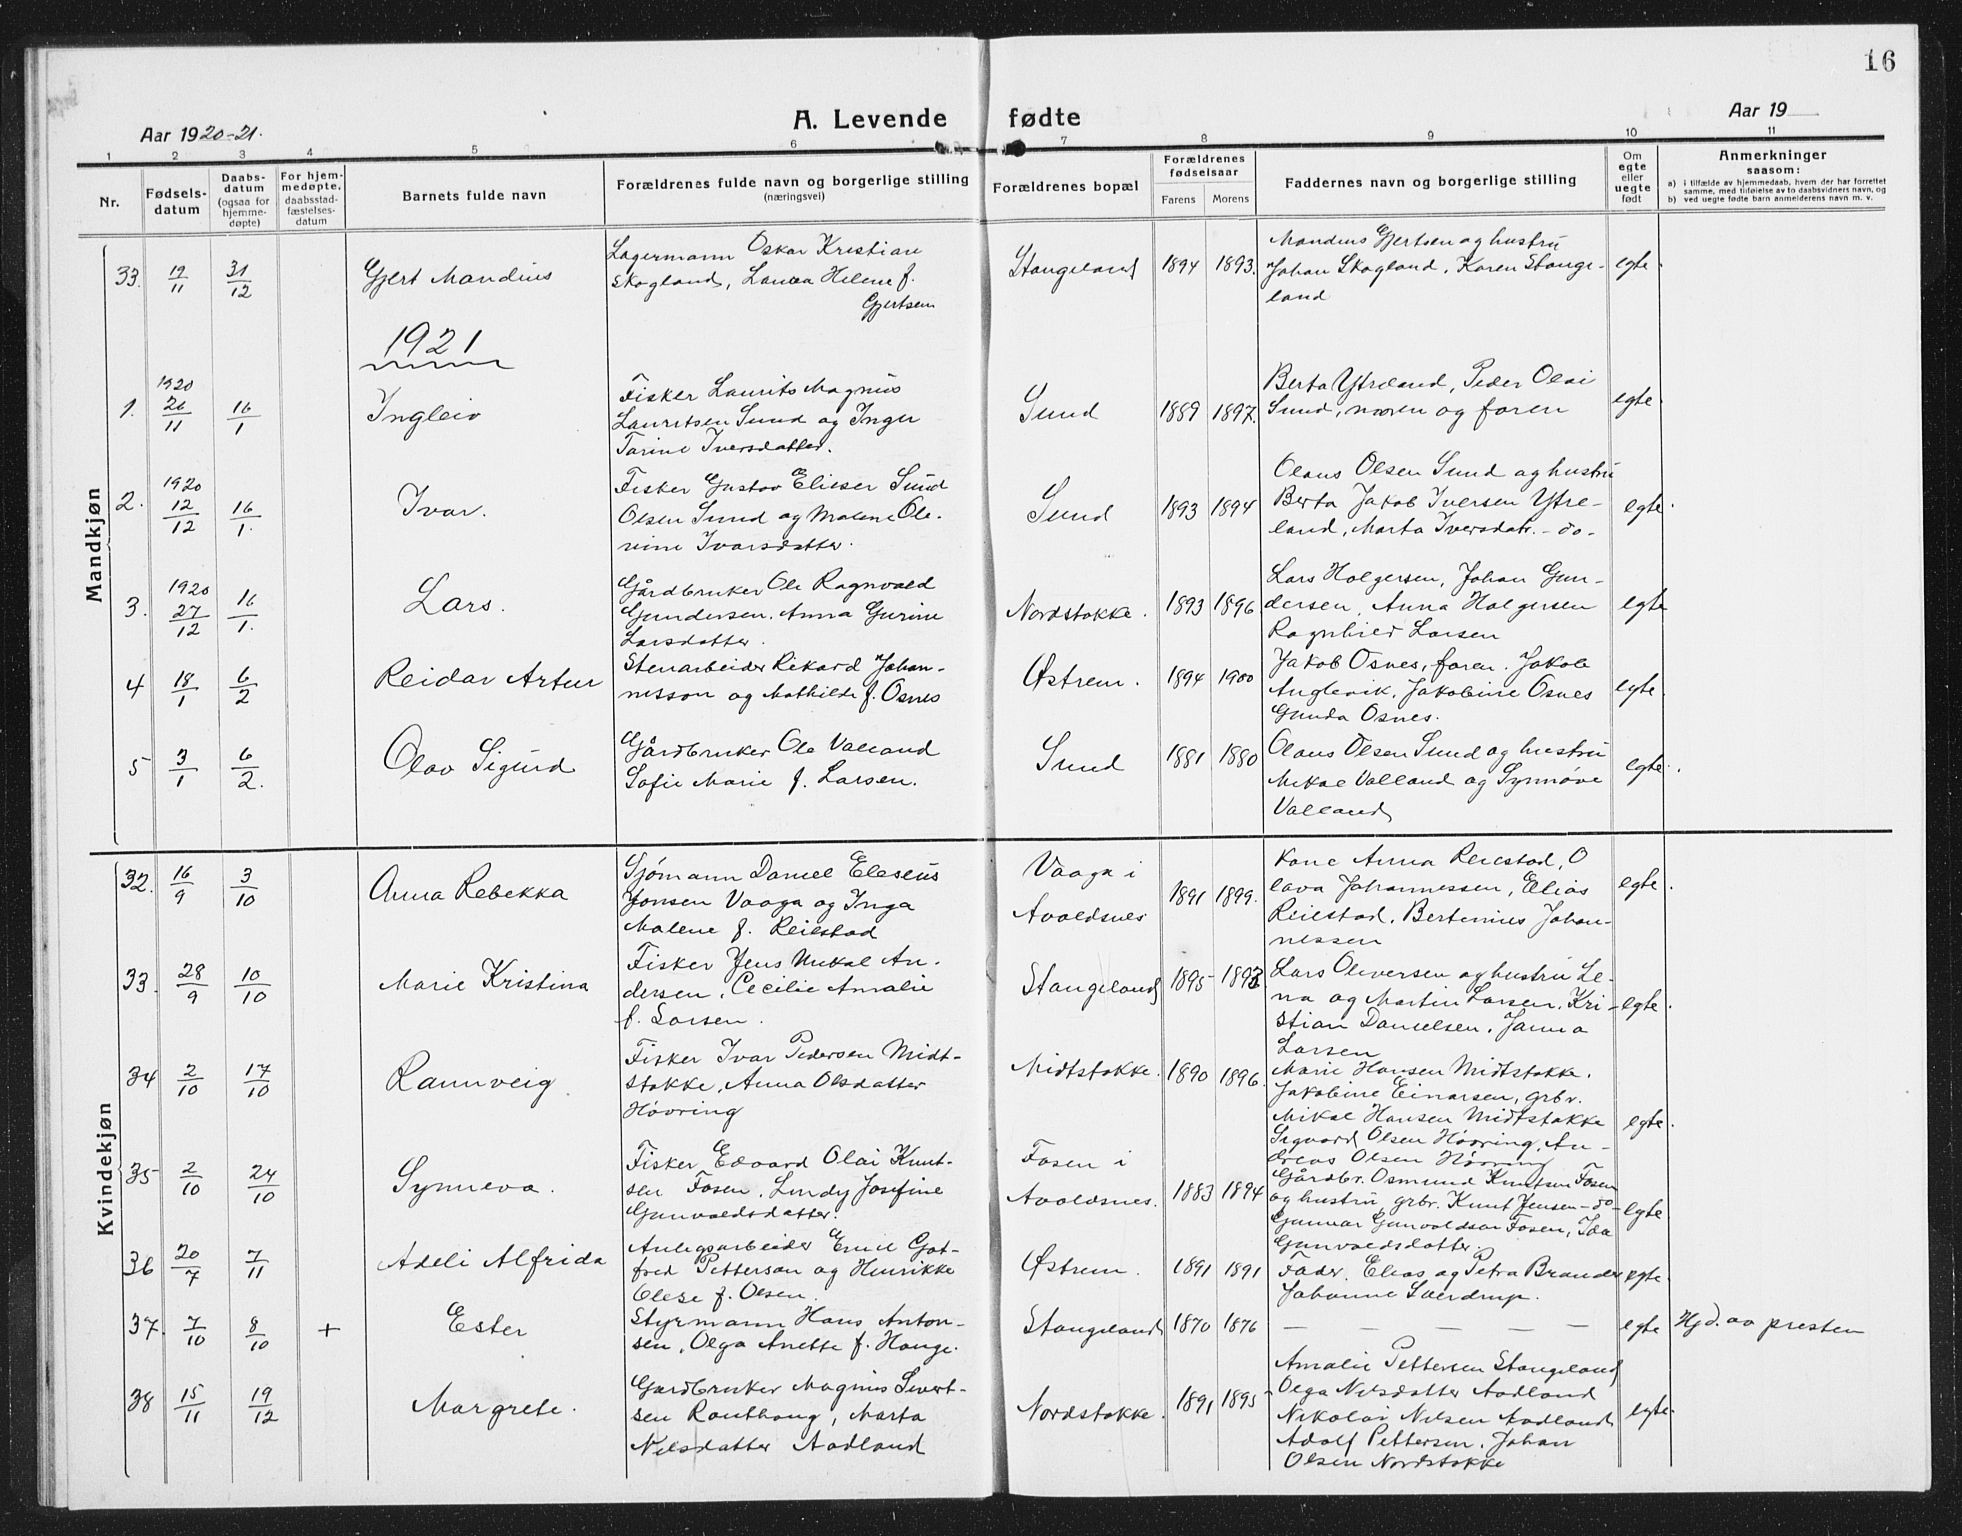 16
Aar 1920-21.
A. Levende fødte
Aar 19
1 2 3 4 5 6 7 8 9 10 11
Nr.
Fødsels-
datum
Daabs-
datum
(ogsaa for
hjemme-
døpte)
For hjem-
medøpte,
daabsstad-
fæstelses-
datum
Barnets fulde navn
Forældrenes fulde navn og borgerlige stilling
(næringsvei)
Forældrenes bopæl
Forældrenes
fødselsaar
Farens Morens
Faddernes navn og borgerlige stilling
Om
egte
eller
uegte
født
Anmerkninger
saasom:
a) i tilfælde av hjemmedaab, hvem der har forrettet
samme, med tilføielse av to daabsvidners navn, og
b) ved uegte fødte barn anmelderens navn m. v.
Mandkjøn
33. 19/11 31/12 Gjert Mandius
Lagermann Oskar Kristian
Skogland, Laura Helene f.
Gjertsen
Stangeland 1894 1893.
Mandius Gjertsen og hustru
Johan Skogland, Karen Stange-
land
egte.
1921
1. 1920 26/11 16/1 Ingleiv
Fisker Laurits Magnus
Lauritsen Sund og Inger
Tarine Iversdatter.
Sund 1889 1897.
Berta Ytreland, Peder Olai
Sund, moren og faren
egte.
2. 1920 12/12 16/1. Ivar.
Fisker Gustav Elieser Sund
Olsen Sund og Malene Ole-
vine Ivarsdatter.
Sund 1893 1894
Olaus Olsen Sund og hustru
Berta Jakob Iversen Ytre-
land, Marta Iversdatr. - do-
egte.
3. 1920 27/12 16/1. Lars.
Gårdbruker Ole Ragnvald
Gundersen. Anna Gurine
Larsdatter.
Nordstokke. 1893 1896.
Lars Holgersen, Johan Gun-
dersen, Anna Holgersen
Ragnhild Larsen
egte
4 18/1 6/2 Reidar Artur
Stenarbeider Rikard Johan-
nesson og Mathilde f. Osnes
Østrem. 1894 1900
Jakob Osnes, faren. Jakob
Anglevik, Jakobine Osnes
Gunda Osnes.
egte.
5 3/1 6/2. Olav Sigurd
Gårdbruker Ole Valland
Sofie Marie f. Larsen.
Sund 1881 1880
Olaus Olsen Sund og hustru
Mikal Valland og Synnøve
Valland
egte.
Kvindekjøn
32. 16/9 3/10 Anna Rebekka
Sjømann Daniel Eleseus
Jonsen Vaaga og Inga
Malene f. Reiestad
Vaaga i
Avaldsnes
1891 1899.
Kone Anna Reiestad, O
lava Johannessen, Elias
Reiestad, Bertinius Johan-
nessen
egte.
33. 28/9 10/10 Marie Kristina
Fisker Jens Mikal An-
dersen. Cecilie Amalie
f. Larsen.
Stangeland 1895 1893
Lars Oliversen og hustru Le-
na og Martin Larsen, Kri-
stian Danielsen, Janna
Larsen
egte.
34 2/10 17/10 Rannveig
Fisker Ivar Pedersen Midt-
stokke, Anna Olsdatter
Høvring
Midtstokke. 1890 1896.
Marie Hansen Midtstokke.
Jakobine Einarsen, grbr.
Mikal Hansen Midtstokke
Sigvard Olsen Høvring, An-
dreas Olsen Høvring
egte.
35 2/10 24/10 Synneva.
Fisker Edvard Olai Knut-
sen Fosen. Lindy Josefine
Gunvaldsdatter.
Fosen i
Avaldsnes.
1883 1894
Gårdbr. Osmund Knutsen Fosen
og hustru, grbr. Knut Jensen - do-
Gunnar Gunvaldsen Fosen, Ida
Gunvaldsdatter.
egte.
36 20/7 7/11 Adeli Alfrida
Anlegsarbeider Emil Got-
fred Petterson og Henrikke
Olese f. Olsen.
Østrem. 1891 1891
Fader. Elias og Petra Brander
Johanne Sverdrup.
egte.
37. 7/10 8/10 + Ester
Styrmann Hans Anton-
sen, Olga Anette f. Hauge.
Stangeland 1870 1876
— — — — —
egte
Hjd. av presten
38 15/11 19/12 Margrete.
Gardbruker Magnus Sivert-
sen Rønthaug, Marta
Nilsdatter Aadland
Nordstokke. 1891 1895
Amalie Pettersen Stangeland
Olga Nilsdatter Aadland
Nikolai Nilsen Aadland
Adolf Pettersen, Johan
Olsen Nordstokke
egte.